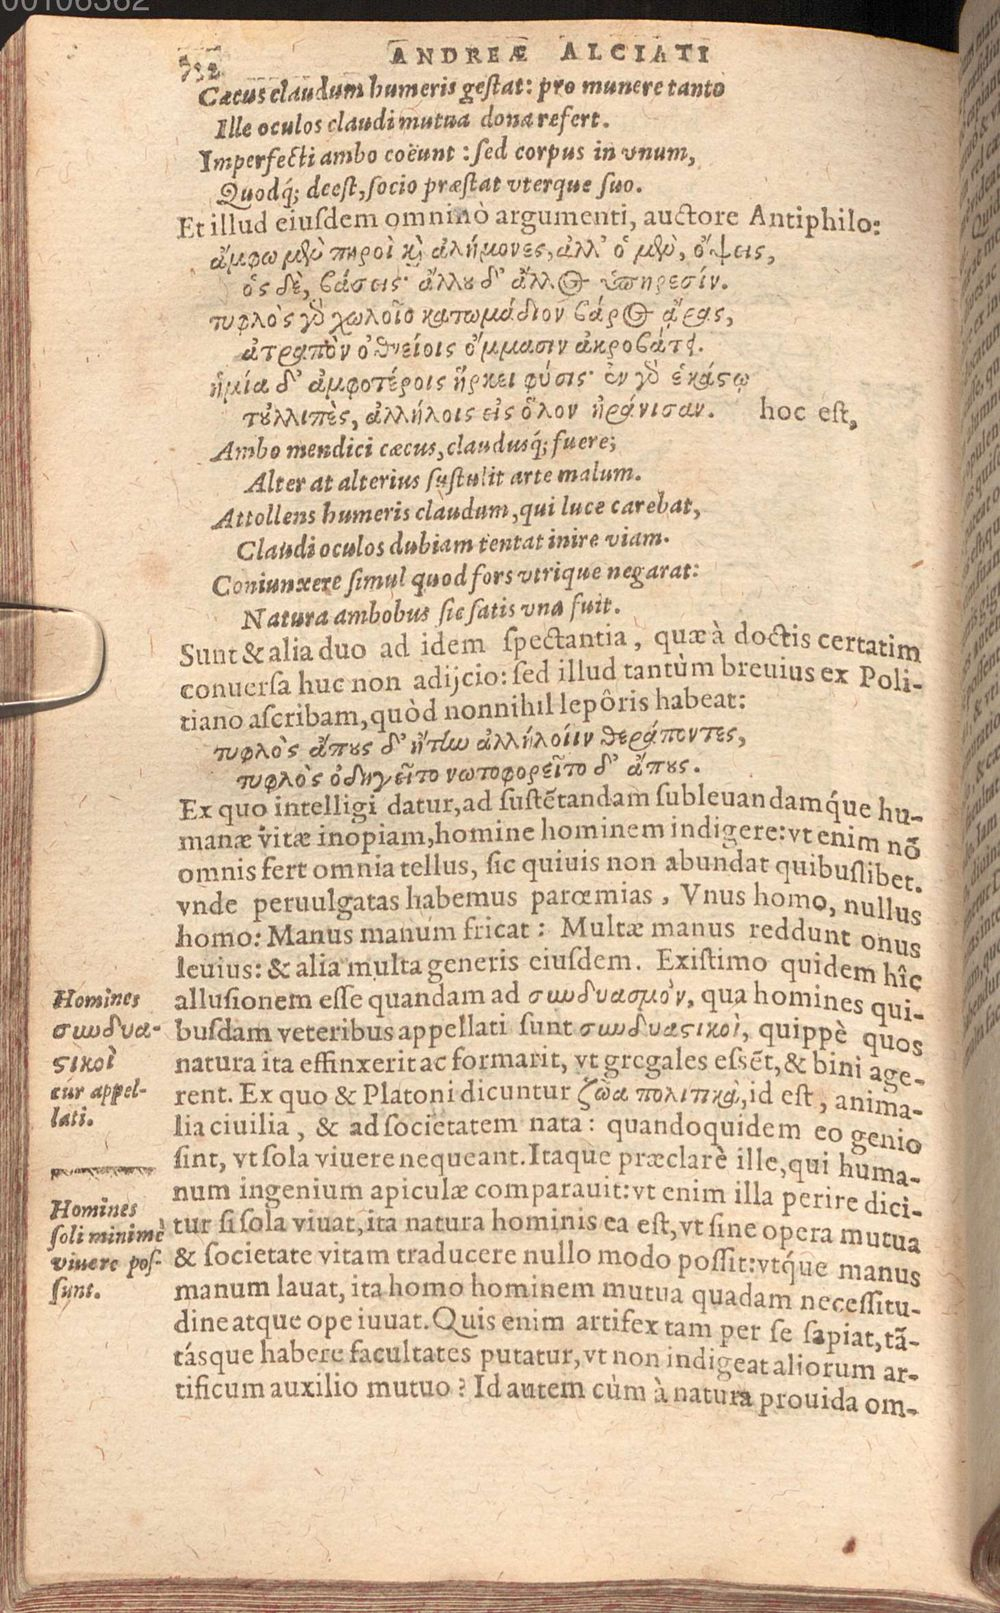 00106362
732
ANDREÆ ALCIATI
Cæcus claudum humeris gestat: pro munere tanto
Ille oculos claudi mutua dona refert.
Imperfecti ambo coëunt: sed corpus in vnum,
Quodq́; deest, socio præstat vterque suo.
Et illud eiusdem omninò argumenti, auctore Antiphilo:
ἄμφω μὲν πηροὶ καὶ ἀλήμονες, ἀλλ' ὁ μὲν, ὄψεις,
ὃς δὲ, βάσεις· ἄλλου δ' ἄλλος ὑπηρεσίν.
τυφλὸς γὰρ χωλοῖο κατωμάδιον βάρος ἄρας,
ἀτραπὸν ὀθνείοις ὄμμασιν ἀκροβάτει.
ἡμία δ' ἀμφοτέροις ἤρκει φύσις· ἐν γὰρ ἑκάστῳ
τοὐλλιπὲς, ἀλλήλοις εἰς ὅλον ἠράνισαν. hoc est,
Ambo mendici cæcus, claudusq́; fuere;
Alter at alterius sustulit arte malum.
Attollens humeris claudum, qui luce carebat,
Claudi oculos dubiam tentat inire viam.
Coniunxere simul quod fors vtrique negarat:
Natura ambobus sic satis vna fuit.
Sunt & alia duo ad idem spectantia, quæ à doctis certatim
conuersa huc non adijcio: sed illud tantùm breuius ex Poli-
tiano ascribam, quòd nonnihil lepôris habeat:
τυφλὸς ἄπους δ' ἤτην ἀλλήλοιιν θεράποντες,
τυφλὸς ὁδηγεῖτο νωτοφορεῖτο δ' ἄπους.
Ex quo intelligi datur, ad sustẽtandam subleuandamq́ue hu-
manæ vitæ inopiam, homine hominem indigere: vt enim nõ
omnis fert omnia tellus, sic quiuis non abundat quibuslibet.
vnde peruulgatas habemus parœmias, Vnus homo, nullus
homo: Manus manum fricat: Multæ manus reddunt onus
leuius: & alia multa generis eiusdem. Existimo quidem hîc
allusionem esse quandam ad συνδυασμὸν, qua homines qui-
busdam veteribus appellati sunt συνδυαστικοὶ, quippè quos
natura ita effinxerit ac formarit, vt gregales essẽt, & bini age-
rent. Ex quo & Platoni dicuntur ζῶα πολιτικὰ, id est, anima-
lia ciuilia, & ad societatem nata: quandoquidem eo genio
sint, vt sola viuere nequeant. Itaque præclarè ille, qui huma-
num ingenium apiculæ comparauit: vt enim illa perire dici-
tur si sola viuat, ita natura hominis ea est, vt sine opera mutua
& societate vitam traducere nullo modo possit: vtq́ue manus
manum lauat, ita homo hominem mutua quadam necessitu-
dine atque ope iuuat. Quis enim artifex tam per se sapiat, tã-
tásque habere facultates putatur, vt non indigeat aliorum ar-
tificum auxilio mutuo? Id autem cùm à natura prouida om-
Homines
συνδυα-
στικοὶ
cur appel-
lati.
Homines
soli minimè
viuere pos-
sunt.